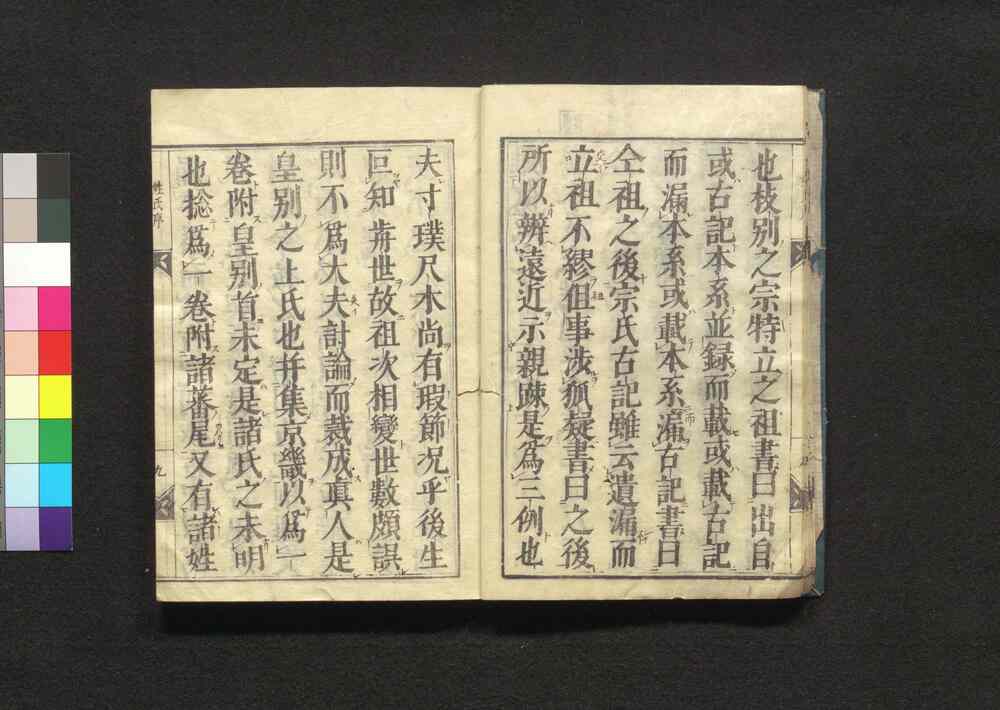 也枝別之宗特立之祖書曰出自
或古記本系並録而載或載古記
而漏本系或載本系漏古記書曰
仝祖之後宗氏古記雖云遺漏而
立祖不繆但事渉狐疑書曰之後
所以辨遠近示親踈是爲三例也
夫寸璞尺木尚有瑕節况乎後生
叵知前世故祖次相變世數頗誤
則不爲大夫討論而裁成真人是
皇別之上氏也并集京畿以爲一
巻附皇別首未定是諸氏之未明
也捴爲一巻附諸蕃尾又有諸姓
姓氏序
九